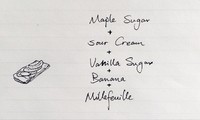 Maple Sugar
+
Sour Cream
+
Vanilla Sugar
+
Banana
+
Millefeuille